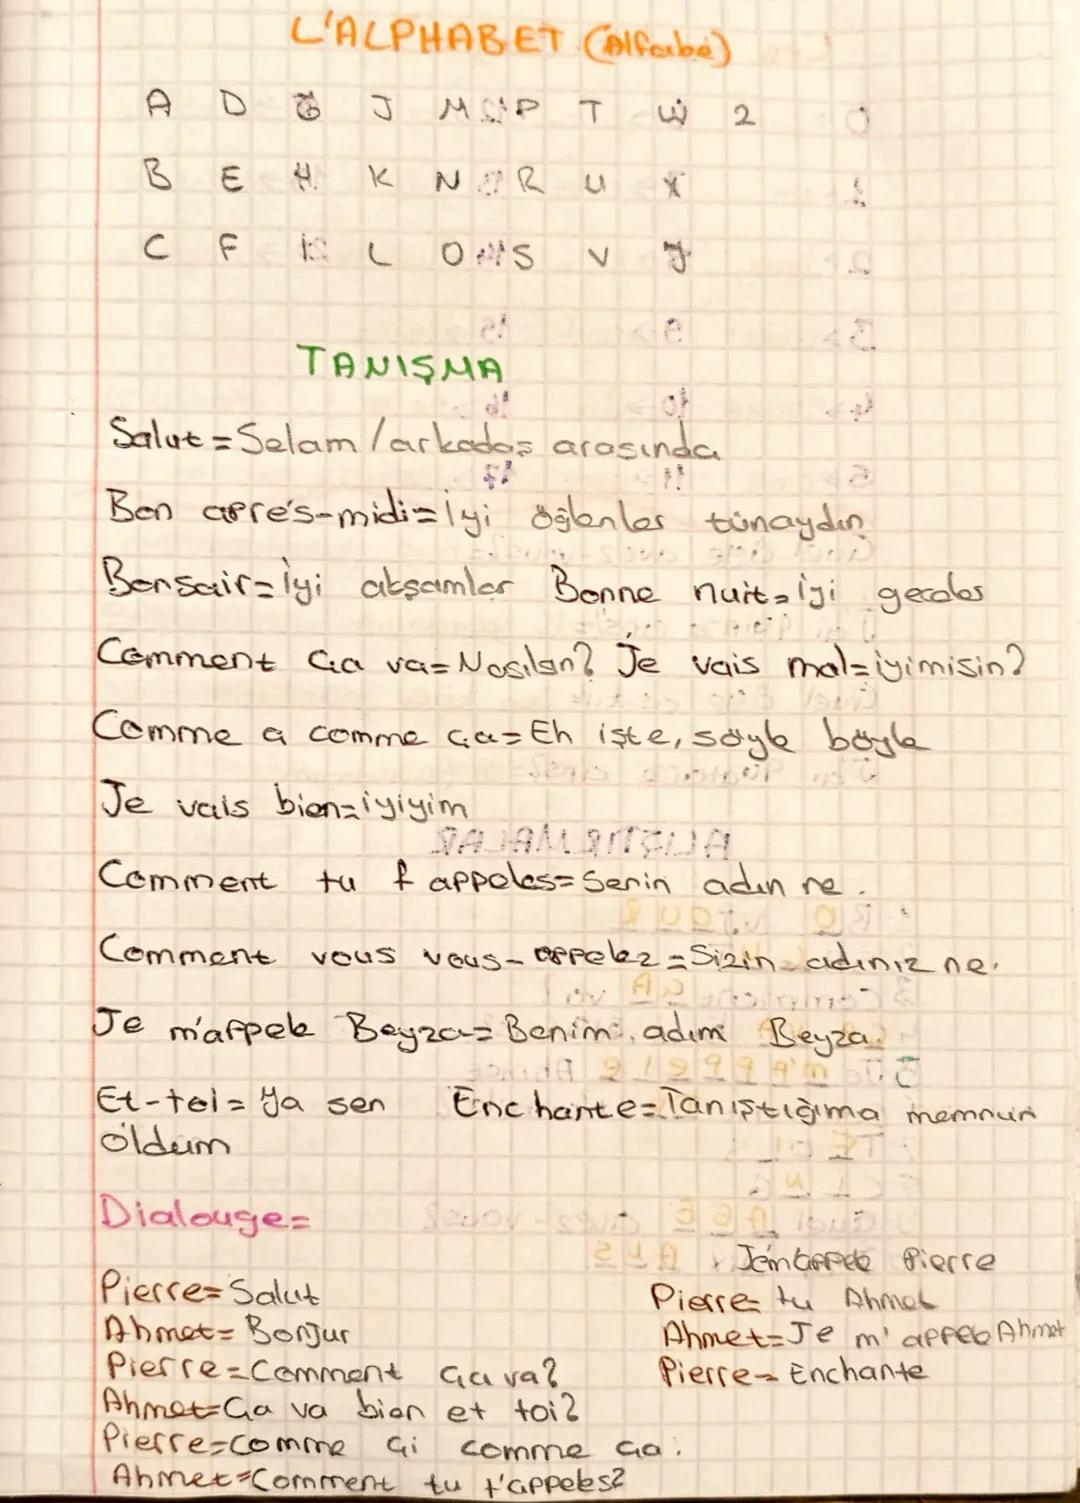 L'ALPHABET (Alfabe)
A D G J M P T W Z
B E H K N R U X
C F I L O S V Y
TANIŞMA
Salut = Selam / arkadaş arasında
Bon après-midi = İyi öğlenler tünaydın
Bonsair = İyi akşamlar Bonne nuit = iyi geceler
Comment Ça va = Nasılsın? Je vais mal = iyimisin?
Comme a comme ça = Eh işte, söyle böyle
Je vais bien = iyiyim
Comment tu t appeles = Senin adın ne.
Comment vous vous-appelez = Sizin adınız ne.
Je m'appele Beyza = Benim adım Beyza.
Et-toi = Ya sen Enchante = Tanıştığıma memnun
oldum
Dialouge =
Pierre = Salut
Ahmet = Bonjur
Pierre = Comment Ça va?
Ahmet = Ça va bien et toi?
Pierre = Comme Çi comme ça.
Ahmet = Comment tu t'appeles?
Je m'appele Pierre
Pierre = tu Ahmet
Ahmet = Je m'appele Ahmet
Pierre = Enchante